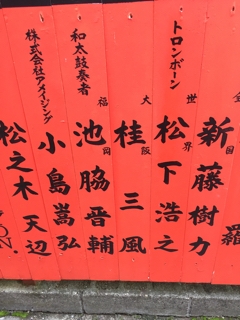 金
羅
全国
新藤樹力
トロンボーン
世界
松下浩之
大阪
桂三風
和太鼓奏者
福岡
池脇晋輔
株式会社アメイジング
小島嵩弘
松之木天辺